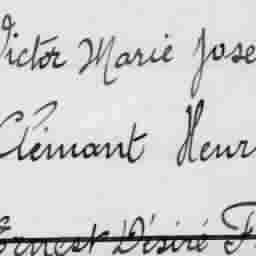 Victor Marie Jose
Clémant Henr
Ernest Désiré F